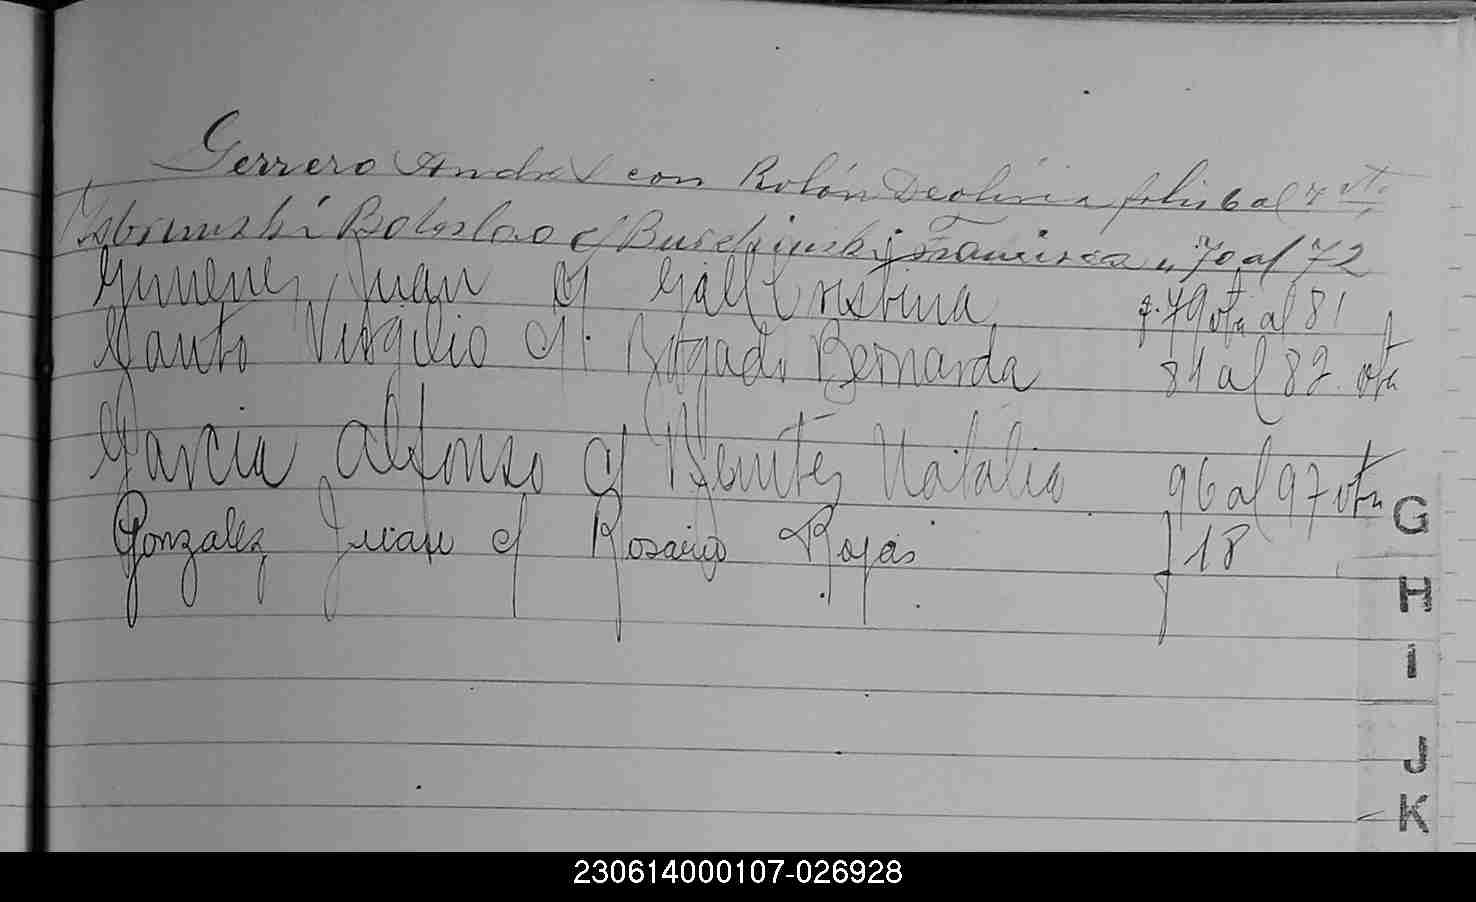 Gerrero Andres con Rolón Deolinia folio 6 al 7 vto.
Boleslao c/ Francisca " 70 al 72
Gimenez Juan c/ Gall Cristina f. 79 vta al 81
Gauto Virgilio c/. Bogado Bernarda 81 al 82 vta
Garcia Alfonso c/ Benitez Natalia 96 al 97 vta
Gonzalez Juan c/ Rosario Rojas f 18
G
H
I
J
K
230614000107-026928